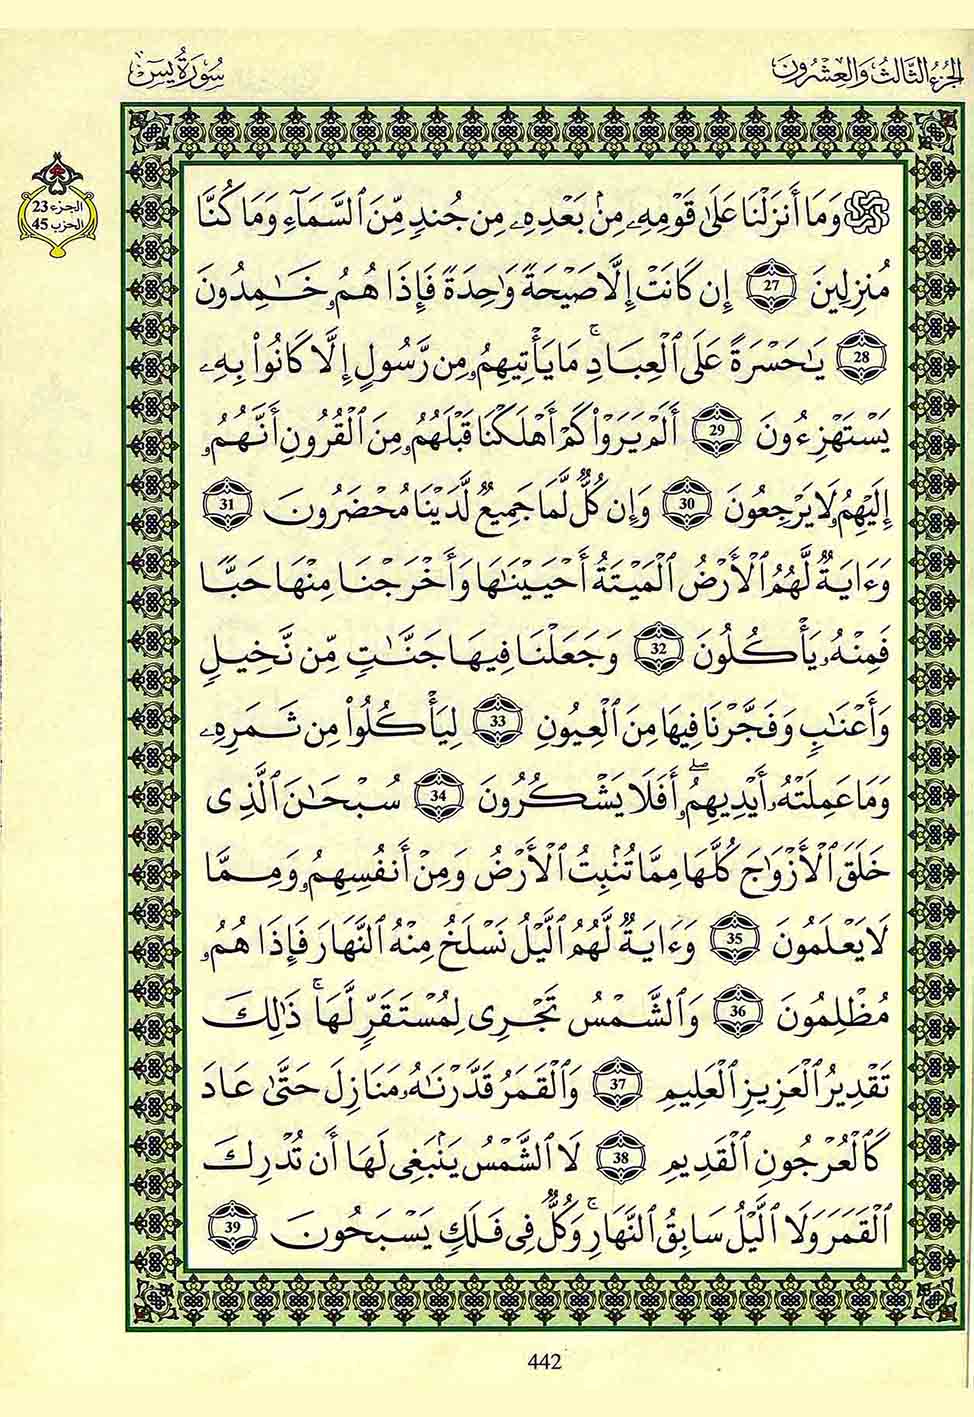 الجُزءُ الثَّالِثُ وَالعِشْرُونَ
سُورَةُ يسٓ
الجزء 23
الحزب 45
۞ وَمَا أَنزَلْنَا عَلَىٰ قَوْمِهِۦ مِنۢ بَعْدِهِۦ مِن جُندٍ مِّنَ ٱلسَّمَآءِ وَمَا كُنَّا
مُنزِلِينَ 27 إِن كَانَتْ إِلَّا صَيْحَةً وَٰحِدَةً فَإِذَا هُمُۥ خَٰمِدُونَ
28 يَٰحَسْرَةً عَلَى ٱلْعِبَادِۚ مَا يَأْتِيهِمُۥ مِن رَّسُولٍ إِلَّا كَانُوا۟ بِهِۦ
يَسْتَهْزِءُونَ 29 أَلَمْ يَرَوْا۟ كَمْ أَهْلَكْنَا قَبْلَهُمُۥ مِنَ ٱلْقُرُونِ أَنَّهُمُۥ
إِلَيْهِمُۥ لَا يَرْجِعُونَ 30 وَإِن كُلٌّ لَّمَا جَمِيعٌ لَّدَيْنَا مُحْضَرُونَ 31
وَءَايَةٌ لَّهُمُ ٱلْأَرْضُ ٱلْمَيْتَةُ أَحْيَيْنَٰهَا وَأَخْرَجْنَا مِنْهَا حَبًّا
فَمِنْهُۥ يَأْكُلُونَ 32 وَجَعَلْنَا فِيهَا جَنَّٰتٍ مِّن نَّخِيلٍ
وَأَعْنَٰبٍ وَفَجَّرْنَا فِيهَا مِنَ ٱلْعِيُونِ 33 لِيَأْكُلُوا۟ مِن ثَمَرِهِۦ
وَمَا عَمِلَتْهُ أَيْدِيهِمُۥۖ أَفَلَا يَشْكُرُونَ 34 سُبْحَٰنَ ٱلَّذِى
خَلَقَ ٱلْأَزْوَٰجَ كُلَّهَا مِمَّا تُنۢبِتُ ٱلْأَرْضُ وَمِنْ أَنفُسِهِمُۥ وَمِمَّا
لَا يَعْلَمُونَ 35 وَءَايَةٌ لَّهُمُ ٱلَّيْلُ نَسْلَخُ مِنْهُ ٱلنَّهَارَ فَإِذَا هُمُۥ
مُظْلِمُونَ 36 وَٱلشَّمْسُ تَجْرِى لِمُسْتَقَرٍّ لَّهَاۚ ذَٰلِكَ
تَقْدِيرُ ٱلْعَزِيزِ ٱلْعَلِيمِ 37 وَٱلْقَمَرُ قَدَّرْنَٰهُۥ مَنَازِلَ حَتَّىٰ عَادَ
كَٱلْعُرْجُونِ ٱلْقَدِيمِ 38 لَا ٱلشَّمْسُ يَنۢبَغِى لَهَا أَن تُدْرِكَ
ٱلْقَمَرَ وَلَا ٱلَّيْلُ سَابِقُ ٱلنَّهَارِۚ وَكُلٌّ فِى فَلَكٍ يَسْبَحُونَ 39
442